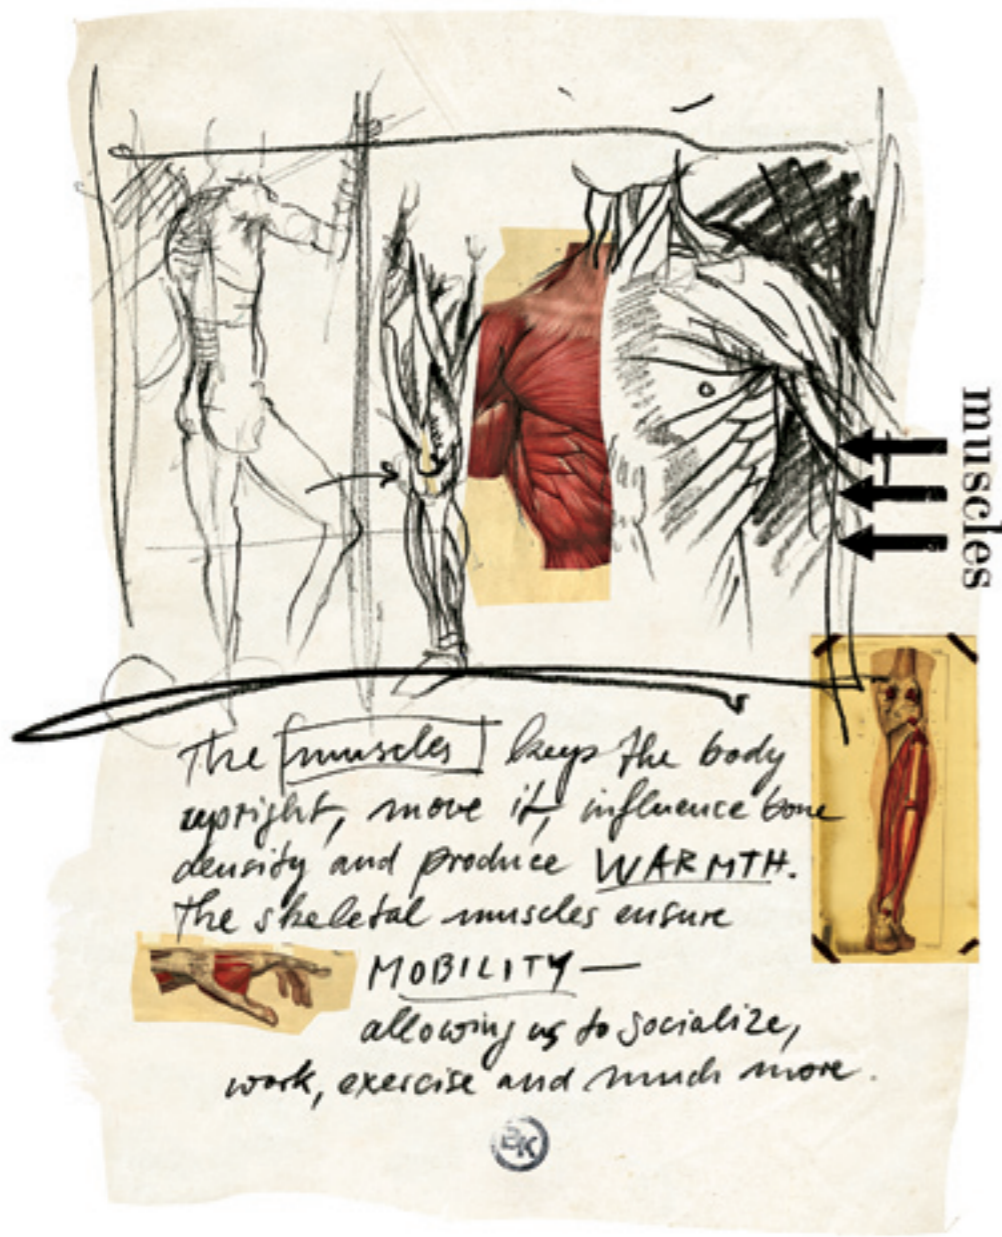 muscles
The muscles keeps the body
upright, move it, influence bone
density and produce WARMTH.
The skeletal muscles ensure
MOBILITY —
allowing us to socialize,
work, exercise and much more.
BK